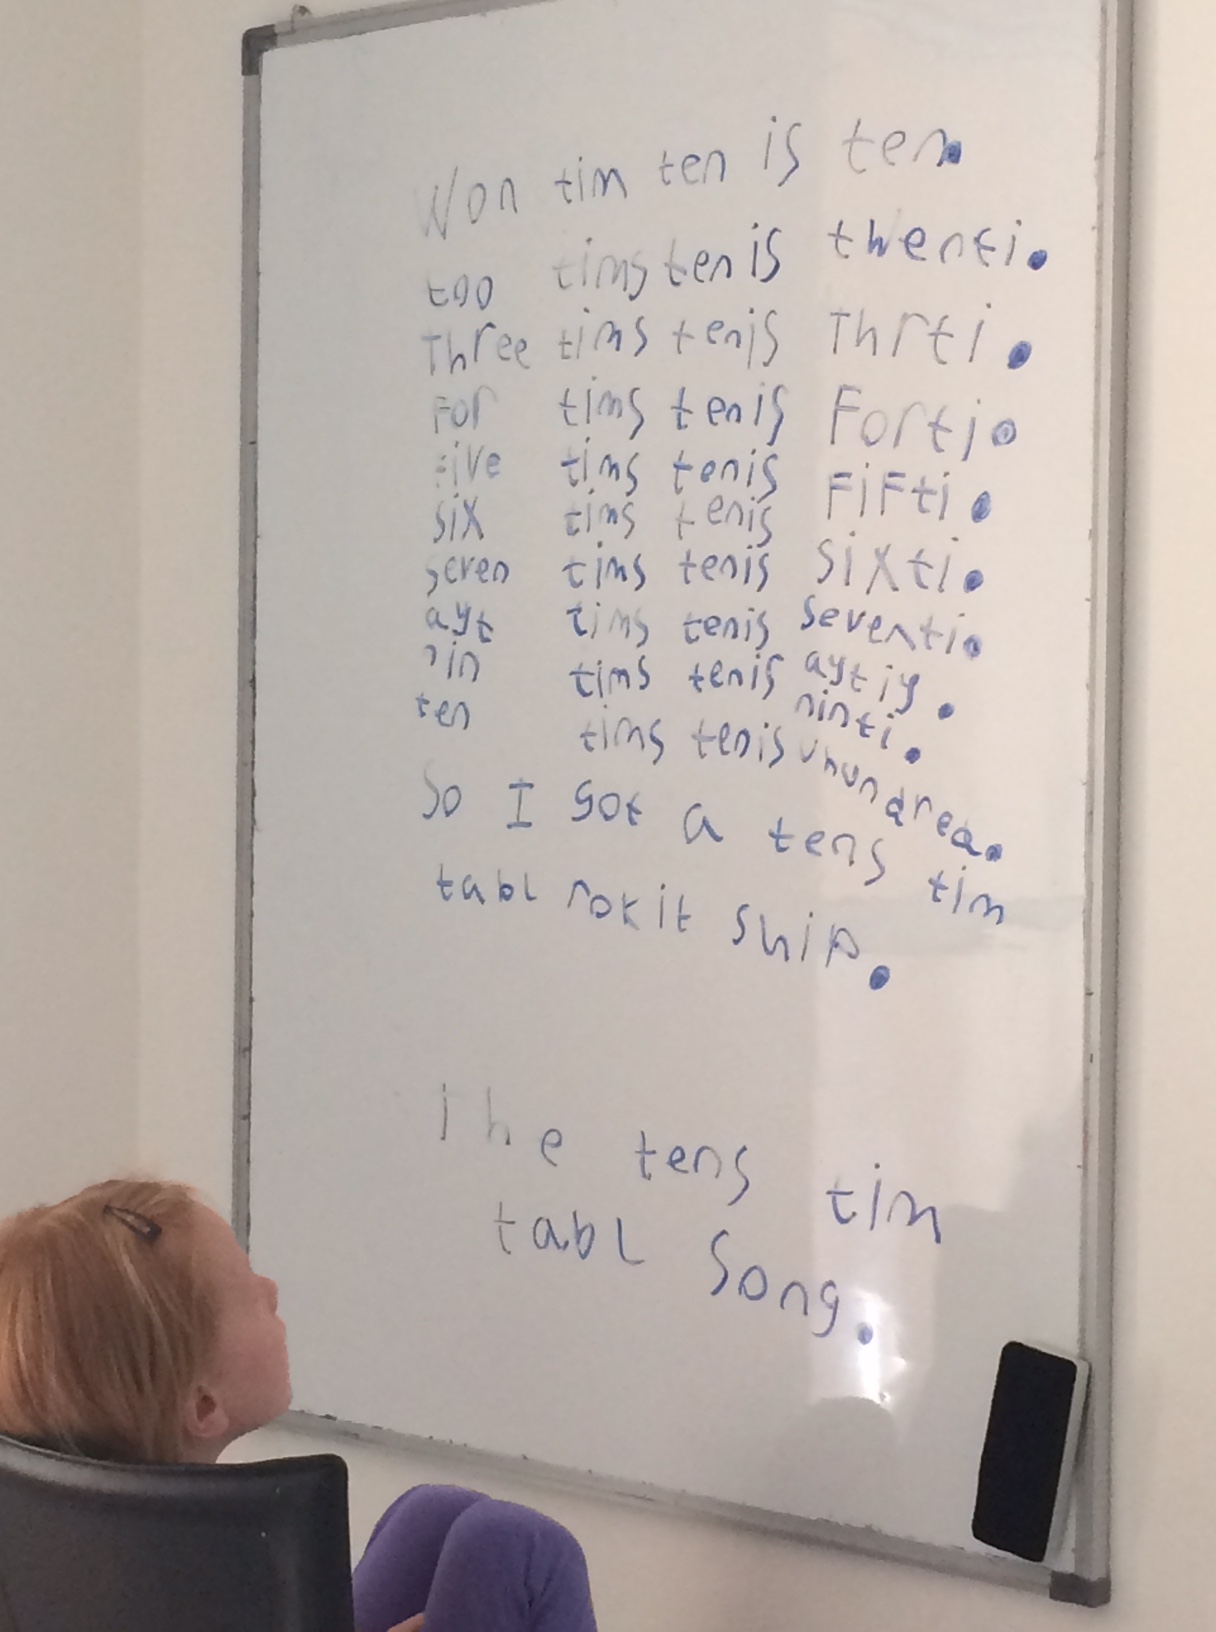 Won tim ten is ten.
too tims ten is twenti.
Three tims tenis Thrti.
For tims tenis Forti.
Five tims tenis FiFti.
six tims tenis sixti.
seven tims tenis seventi.
ayt tims tenis aytiy.
nin tims tenis ninti.
ten tims tenis uhundred.
So I got a tens tim
tabl rokit ship.
The tens tim
tabl song.